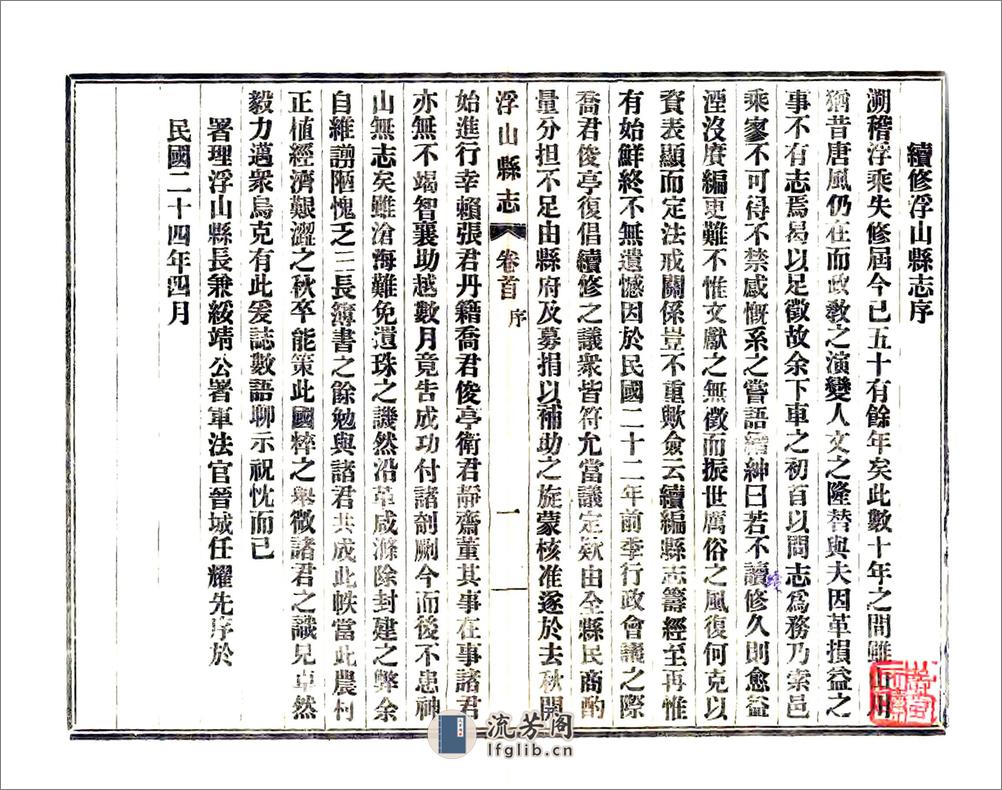 續修浮山縣志序
溯稽浮乘失修屆今已五十有餘年矣此數十年之間雖山川
猶昔唐風仍在而政教之演變人文之隆替與夫因革損益之
事不有志焉曷以足徵故余下車之初首以問志為務乃索邑
乘寥不可得不禁感慨系之嘗語縉紳曰若不讀修久則愈益
湮沒賡編更難不惟文獻之無徵而振世厲俗之風復何克以
資表顯而定法戒關係豈不重歟僉云續編縣志籌經至再惟
有始鮮終不無遺憾因於民國二十二年前季行政會議之際
喬君俊亭復倡續修之議衆皆符允當議定欵由全縣民商酌
量分担不足由縣府及募捐以補助之旋蒙核准遂於去秋開
浮山縣志 卷首 序 一
始進行幸賴張君丹籍喬君俊亭衛君靜齋董其事在事諸君
亦無不竭智襄助越數月竟告成功付諸剞劂今而後不患神
山無志矣雖滄海難免遺珠之譏然沿革咸滌除封建之弊余
自維謭陋愧乏三長簿書之餘勉與諸君共成此帙當此農村
正植經濟艱澀之秋卒能策此國粹之舉微諸君之識見卓然
毅力邁衆烏克有此爰誌數語聊示祝忱而已
署理浮山縣長兼綏靖公署軍法官晉城任耀先序於
民國二十四年四月
續
流芳阁
lfglib.cn